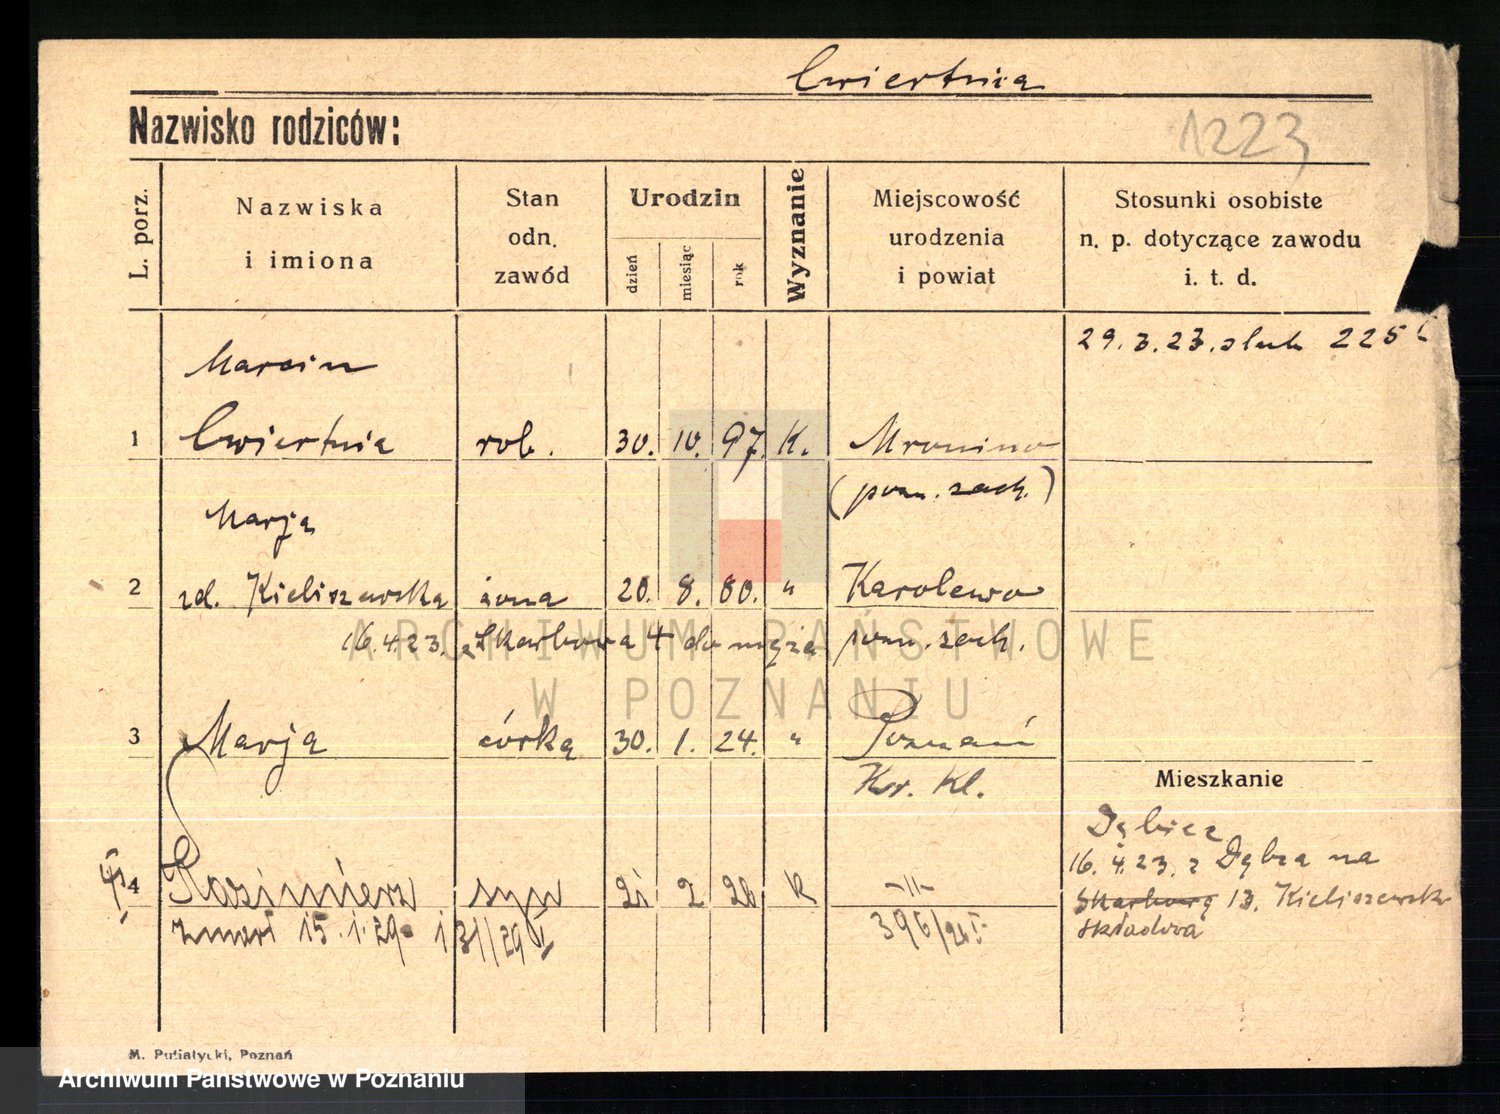 Cwiertnia
Nazwisko rodziców:
1223
L. porz.
Nazwiska
i imiona
Stan
odn.
zawód
Urodzin
dzień
miesiąc
rok
Wyznanie
Miejscowość
urodzenia
i powiat
Stosunki osobiste
n. p. dotyczące zawodu
i. t. d.
29. 3. 23. slub 225
Marcin
1 Cwiertnia rob. 30. 10. 97. K. Mronino
(pow. zach.)
Marja
2 zd. Kieliszewska żona 20. 8. 80. " Karolewo
16.4.23. z Skarbowa 4 do męża pow. zach.
3 Marja córka 30. 1. 24. " Poznań
Kr. Kl.
Mieszkanie
Dębiec
16. 4. 23. z Dębca na
4 Kazimierz syn 21 2 26 k -"-
Skarbową 13. Kieliszewsk
zmarł 15. 1. 29. 131/29 396/26 I
Składowa
M. Putiatycki, Poznań
ARCHIWUM PAŃSTWOWE
W POZNANIU
Archiwum Państwowe w Poznaniu